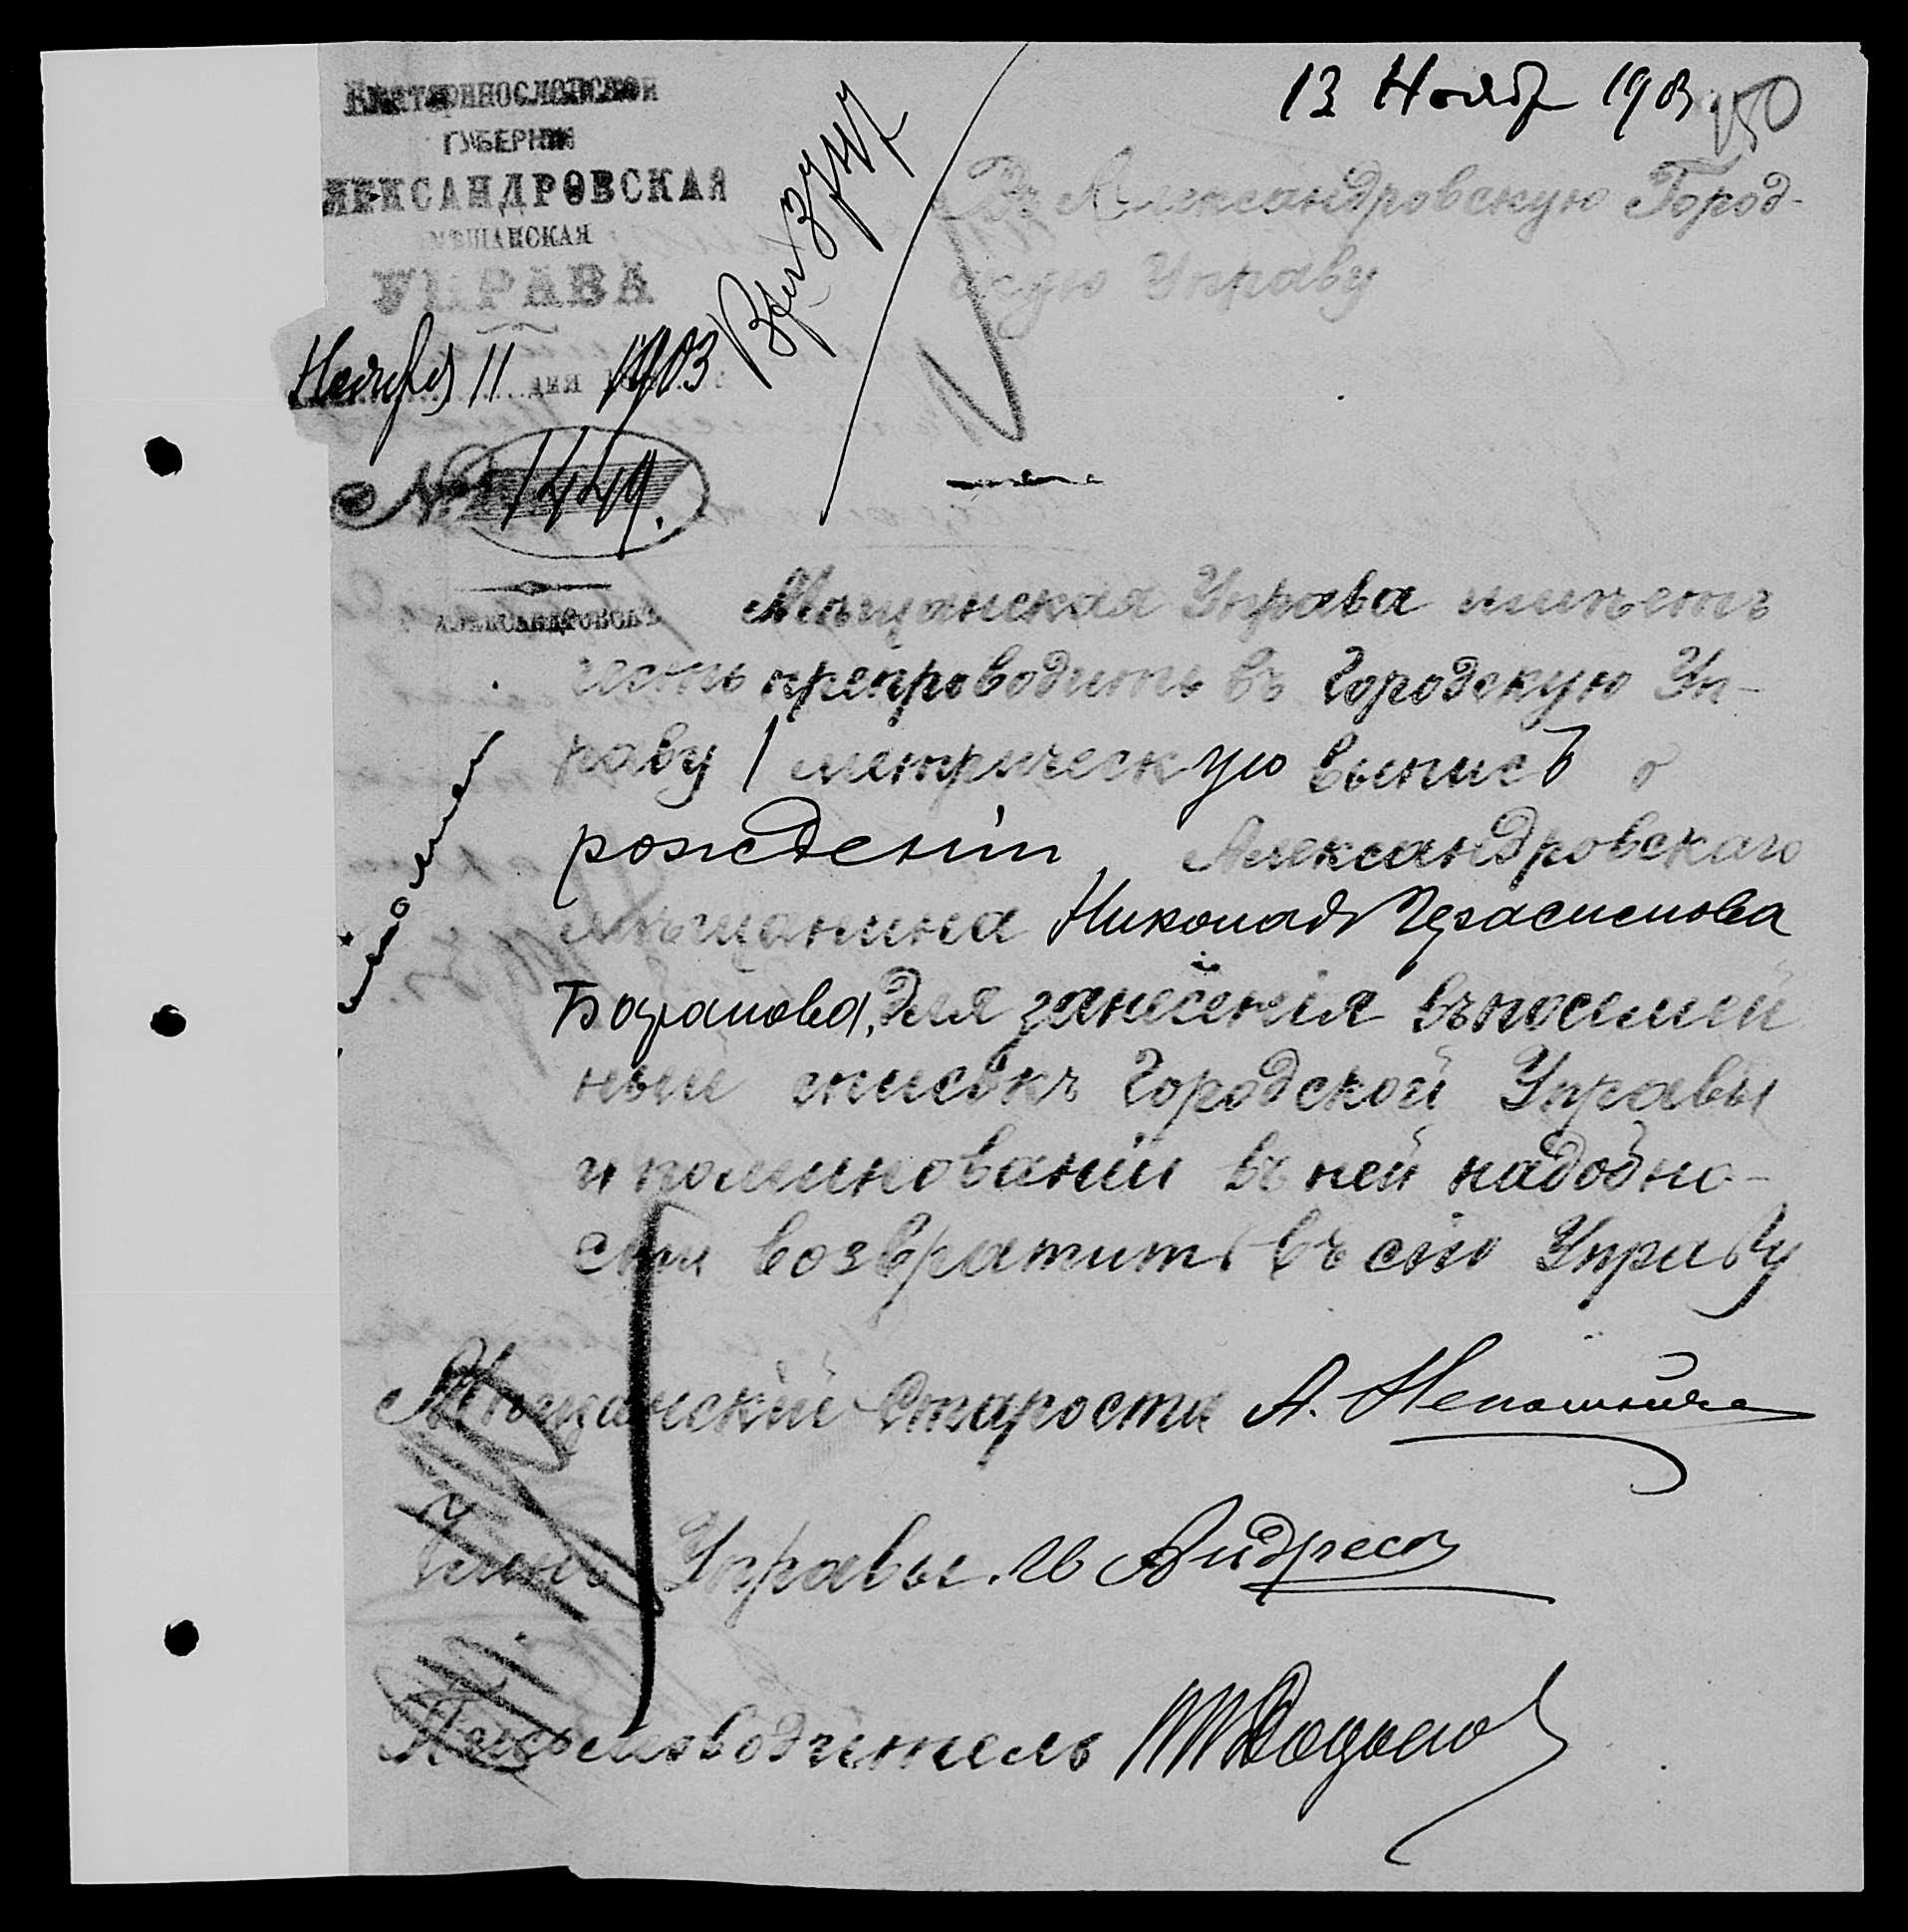 Екатеринославской
ГУБЕРНІИ
АЛЕКСАНДРОВСКАЯ
МѢЩАНСКАЯ
УПРАВА
Ноября 11 дня 1903
№ 1449.
АЛЕКСАНДРОВСКЪ
13 Ноябр 1903
150
Въ Александровскую Город-
скую Управу
Мѣщанская Управа имѣетъ
честь препроводить въ Городскую Уп-
раву 1 метрическую выпись о
рожденіи Александровскаго
мѣщанина Николая Герасимова
Баранова, для занесенія въ посемей
ный списокъ Городской Управы
и по минованіи въ ней надобно-
сти возвратить въ сію Управу
Мѣщанскій Староста А.
Членъ Управы. Андреевъ
Письмоводитель